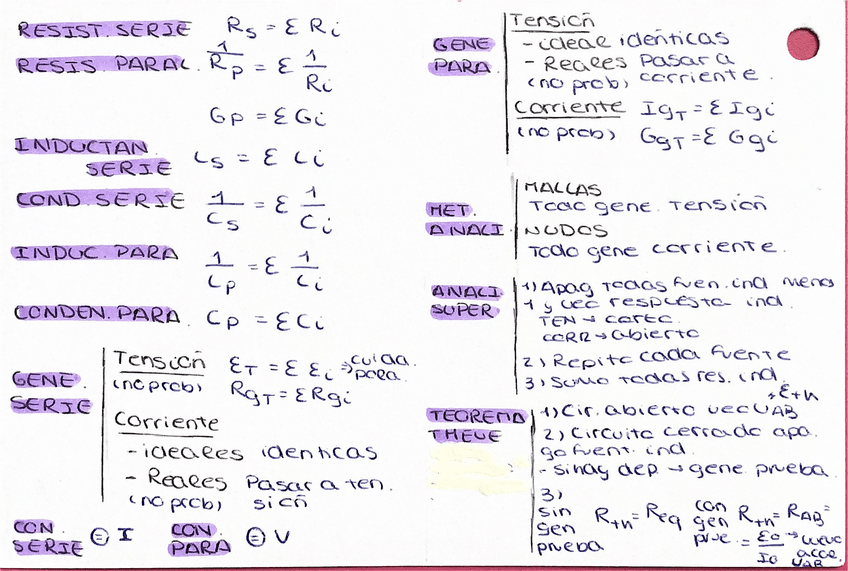 RESIST. SERIE Rs = Σ Ri
RESIS. PARAL. 1/Rp = Σ 1/Ri
Gp = Σ Gi
INDUCTAN. SERIE Ls = Σ Li
COND. SERIE 1/Cs = Σ 1/Ci
INDUC. PARA 1/Lp = Σ 1/Li
CONDEN. PARA. Cp = Σ Ci
GENE. SERIE
Tensión (no prob) ƐT = Σ Ɛi ⇒ cuida. pola.
RgT = Σ Rgi
Corriente
- ideales identicas
- Reales Pasar a ten.
(no prob) sión
CON. SERIE ⊜ I CON. PARA ⊜ V
GENE PARA.
Tensión
- ideal identicas
- Reales Pasar a
(no prob) corriente.
Corriente IgT = Σ Igi
(no prob) GgT = Σ Ggi
MET. ANALI.
MALLAS
Todo gene. Tensión
NUDOS
Todo gene corriente.
ANALI. SUPER
1) Apag todas fuen. ind menos
1 y veo respuesta ind.
TEN → corto.
CORR → abierto
2) Repito cada fuente
3) Sumo todas res. ind.
TEOREMA THEVE
1) Cir. abierto veo UAB → Ɛth
2) Circuito cerrado apa.
go fuent. ind.
- si hay dep → gene prueba.
3)
sin gen prueba Rth = Req
con gen prue. Rth = RAB =
= Ɛo/Io